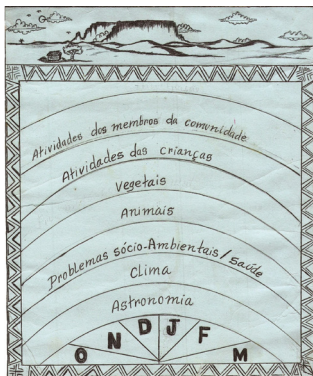 Atividades dos membros da comunidade
Atividades das crianças
Vegetais
Animais
Problemas sócio-Ambientais/Saúde
Clima
Astronomia
O N D J F M